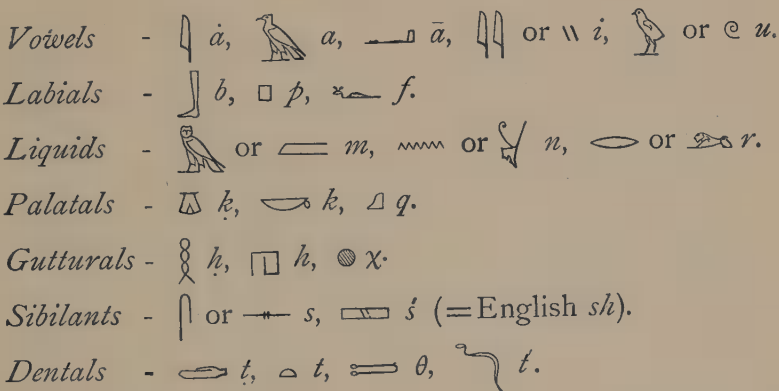 Vowels - 𓇋 ȧ, 𓄿 a, 𓂝 ā, 𓇋𓇋 or 𓏭 i, 𓅱 or 𓏲 u.
Labials - 𓃀 b, 𓊪 p, 𓆑 f.
Liquids - 𓅓 or 𓐝 m, 𓈖 or 𓋔 n, 𓂋 or 𓃭 r.
Palatals - 𓎼 ḳ, 𓎡 k, 𓈎 q.
Gutturals - 𓎛 ḥ, 𓉔 h, 𓐍 χ.
Sibilants - 𓋴 or 𓊃 s, 𓈙 ś (=English sh).
Dentals - 𓂧 ṭ, 𓏏 t, 𓍿 θ, 𓆓 t́.